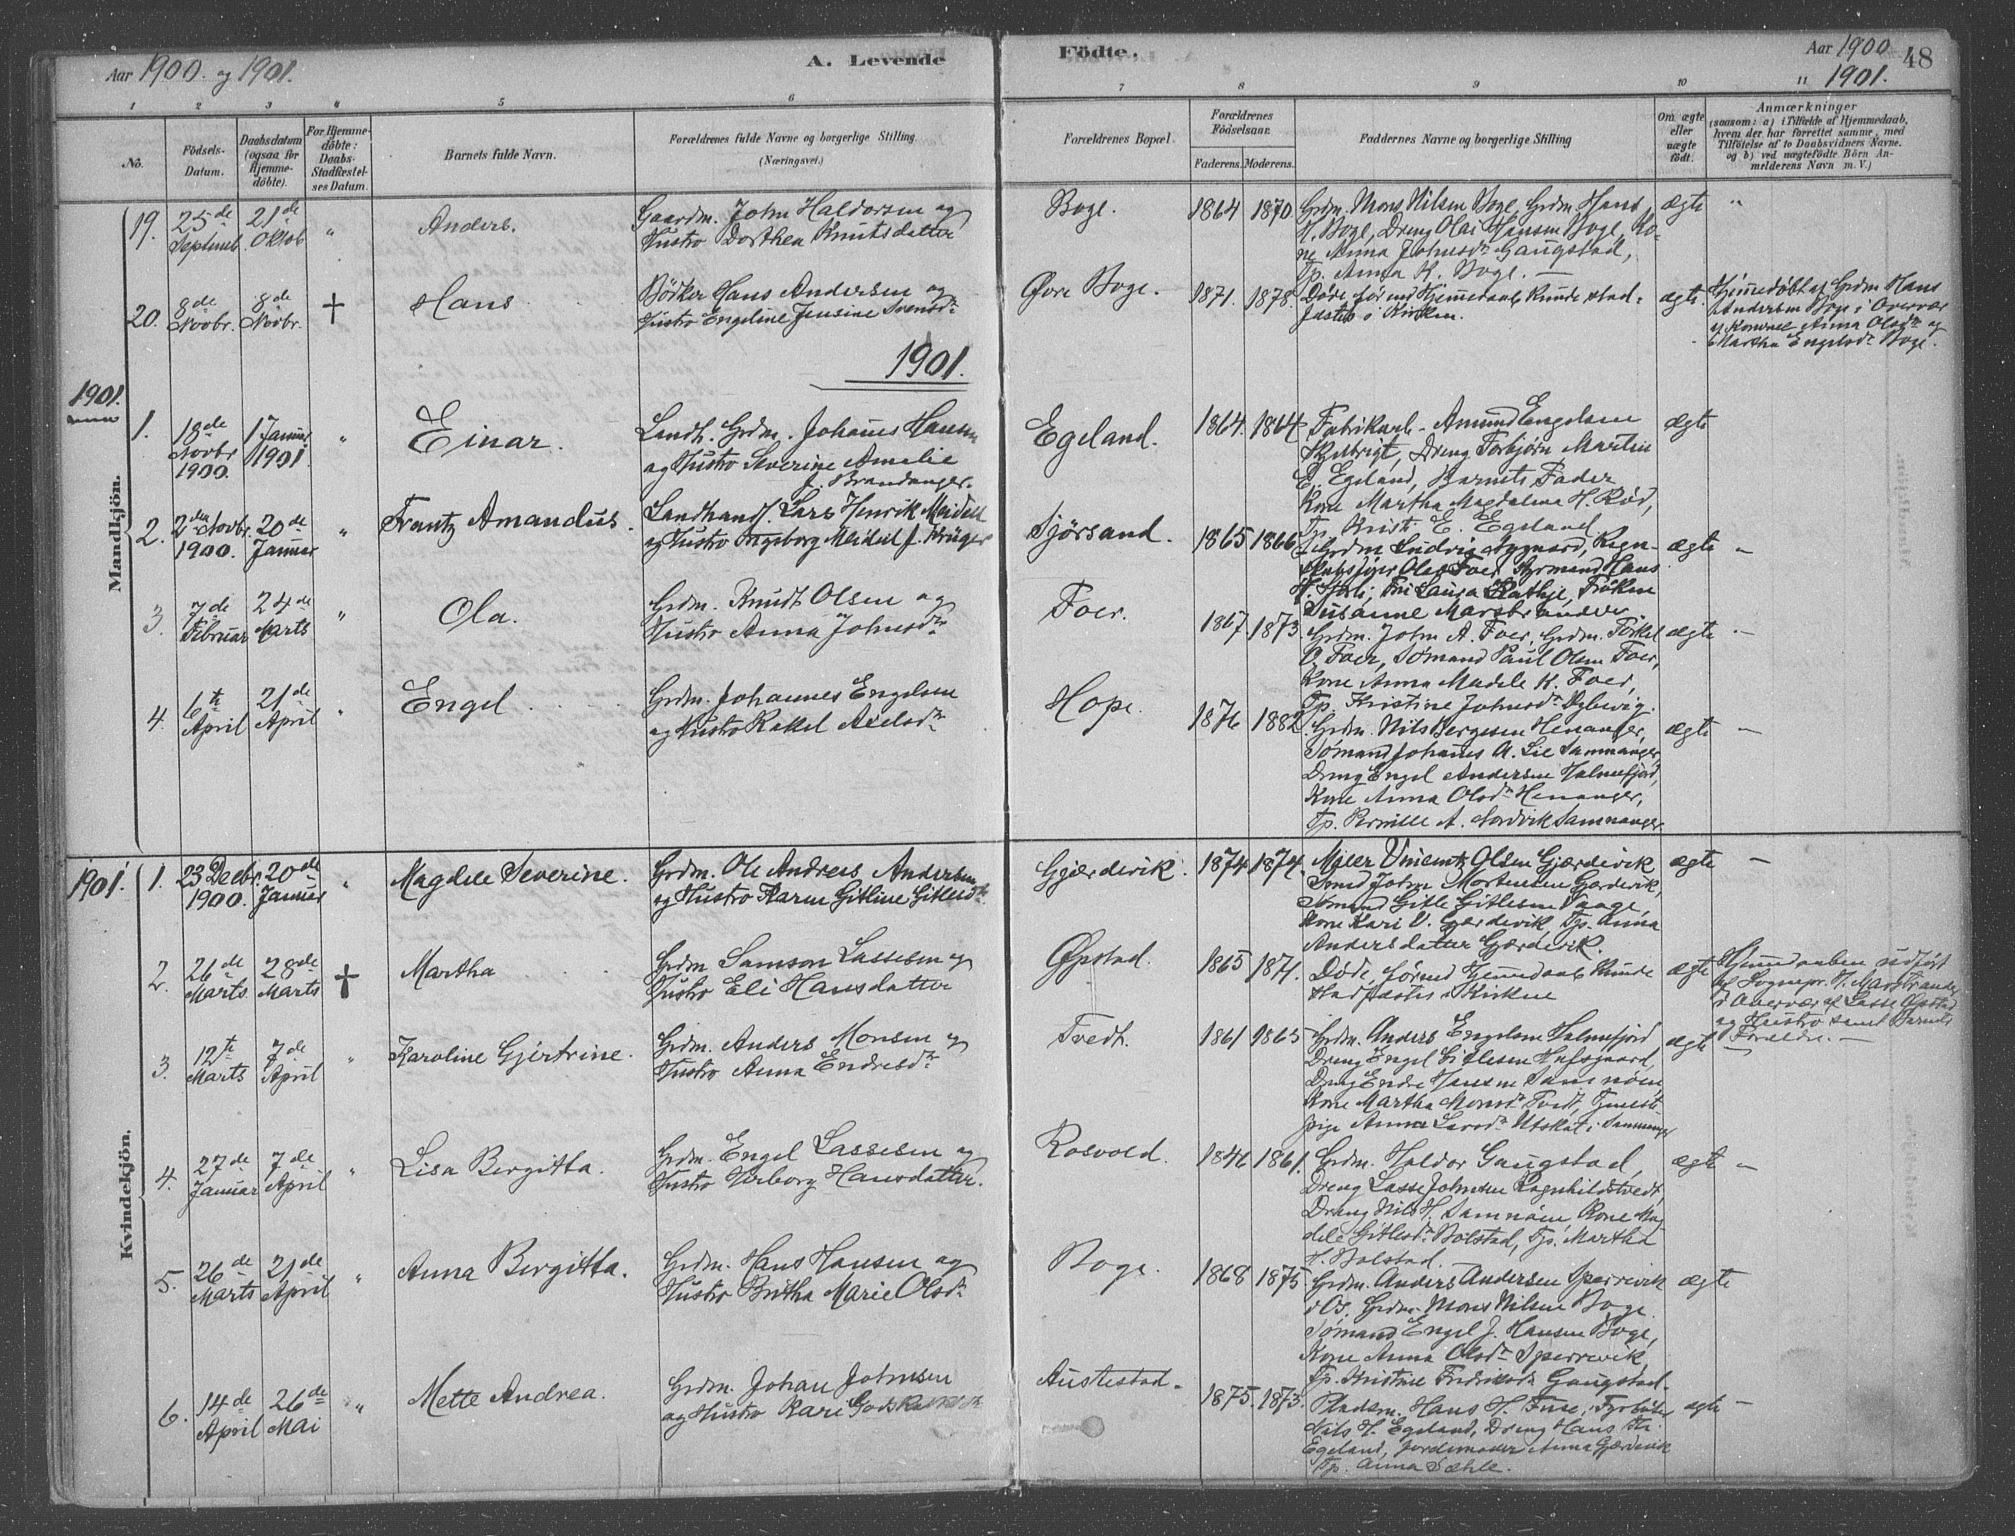 Aar 1900. og 1901.
A. Levende
Födte.
Aar 1900
1901.
48
1 2 3 4 5 6 7 8 9 10 11
No.
Födsels-
Datum.
Daabsdatum
(ogsaa for
Hjemme-
döbte).
For Hjemme-
döbte:
Daabs-
Stadfæstel-
ses Datum.
Barnets fulde Navn.
Forældrenes fulde Navne og borgerlige Stilling
(Næringsvei.)
Forældrenes Bopæl.
Forældrenes
Födselsaar.
Faderens. Moderens.
Faddernes Navne og borgerlige Stilling
Om ægte
eller
uægte
födt.
Anmærkninger
(saasom: a) i Tilfælde af Hjemmedaab,
hvem der har forrettet samme, med
Tilföielse af to Daabsvidners Navne.
og b) ved uægtefödte Börn An-
melderens Navn m. V.)
Mandkjön.
19. 25de Septembr. 21de Oktob " Anders.
Gaardm. John Haldorsen og
Hustro Dorthea Knutsdatter
Boge. 1864 1870
Grdm. Mons Nilsen Boge, Grdm. Hans
H. Boge, Dreng Olai Hansen Boge, Ko-
ne Anna Johnsdr Gaugstad,
Tp. Anna K. Boge. —
ægte "
20. 8de Novbr. 8de Novbr. † Hans
Bödker Hans Andersen og
Hustro Engeline Jensine Svensdr
Øvre Boge. 1871. 1878.
Døde før end Hjemmedaab kunde stad-
fæstes i Kirken.
ægte.
Hjemmedøbt af Grdm. Hans
Andersen Boge i Overvær
af Konerne Anna Olsdr og
Martha Engelsdr Boge.
1901.
1901.
1. 18de Novbr 1900. 1 Januar 1901 " Einar.
Landh. Grdm. Johannes Hansen
og Hustro Severine Amalie
f. Brandanger.
Egeland. 1864. 1864
Fabrikarb. Amund Engelsen
Skjelbrigt, Dreng Torbjørn Martin
E. Egeland, Barnets Fader
Kone Martha Magdalena H. Rød,
Tp. Kristi E. Egeland
ægte
2. 2den Novbr. 1900. 20de Januar " Frantz Amandus.
Landhandl. Lars Henrik Meidell
og Hustro Ingeborg Meidell f. Krüger
Sjørsand. 1865 1866
Grdm Ludvig Nygaard, Regn-
skabsfører Ole Foer, Styrmand Hans
H. Hope, Fru Laura Rathje, Frøken
Susanne Marstrander.
ægte —
3. 7de Februar 24de Marts " Ola.
Grdm. Knudt Olsen og
Hustro Anna Johnsdr
Foer. 1867. 1873
Grdm. John A. Foer, Grdm. Torkel
O. Foer, Sømand Paul Olsen Foer,
Kone Anna Madele K. Foer,
Tp. Kristine Johnsdr Dybvig.
ægte —
4. 6te April 21de April " Engel
Grdm. Johannes Engelsen
og Hustro Rakel Axelsdr
Hope. 1876 1882
Grdm. Nils Bergesen Henanger,
Sømand Johannes A. Lie Samnanger,
Dreng Engel Andersen Holmefjord,
Kone Anna Olsdr Henanger,
Tp. Pernille A. Nordvik Samnanger
ægte —
1901.
Kvindekjön.
1. 23 Decbr. 1900. 20de Januar " Magdele Severine.
Grdm. Ole Andreas Andersen
og Hustro Karen Gitline Gitlesdtr
Gjærdevik. 1874 1874.
Maler Vincentz Olsen Gjærdevik
Smed John Mortensen Gjærdevik,
Sømand Gitle Gitlesen Vaage,
Kone Kari V. Gjærdevik, Tp. Anna
Andersdatter Gjærdevik.
ægte —
2. 26de Marts 28de Marts † Martha
Grdm Samson Lassesen og
Hustro Eli Hansdatter
Øpstad. 1865 1871.
Døde, førend Hjemmedaab kunde
stadfæstes i Kirken
ægte
Hjemmedaaben udført
af Sognepr. H. Marstrander
i Overvær af Lasse Øpstad
og Hustro samt Barnets
Forældre. —
3. 12te Marts 7de April " Karoline Gjertrine.
Grdm. Anders Monsen og
Hustro Anna Endresdr
Tvedt. 1861 1863
Grdm. Anders Engelsen Holmefjord
Dreng Engel Gitlesen Hafsgaard,
Dreng Endre Hansen Samnøen,
Kone Martha Monsdr Tvedt, Tjeneste-
pige Anna Larsdr Utskot i Samnanger
ægte —
4. 27de Januar 7de April " Lisa Bergitta.
Grdm. Engel Lassesen og
Hustro Verborg Hansdatter.
Rosvold. 1846 1861.
Grdm. Haldor Gaugstad,
Dreng Lasse Johnsen Ragnhildstvedt,
Dreng Nils H. Samnøen, Kone Ma-
dele Gitlesdr Bolstad, Tp. Martha
H. Bolstad.
ægte —
5. 26de Marts 21de April " Anna Bergitta.
Grdm. Hans Hansen og
Hustro Britha Marie Olsdr
Boge. 1868 1875
Grdm. Anders Andersen Sperrevik
i Os, Grdm. Mons Nilsen Boge.
Sømand Engel J. Hansen Boge,
Kone Anna Olsdr Sperrevik,
Tp. Kristine Fredriksdr Gaugstad.
ægte
6. 14de April 26de Mai " Mette Andrea.
Grdm. Johan Johnsen
og Hustro Kari Godskalksdr
Austestad. 1875. 1873.
Pladsm. Hans H. Fuse, Fyrbøter
Nils H. Egeland, Dreng Hans
Egeland, Jordemoder Anna Gjærdevik
Tp. Anna Sæhle.
ægte —